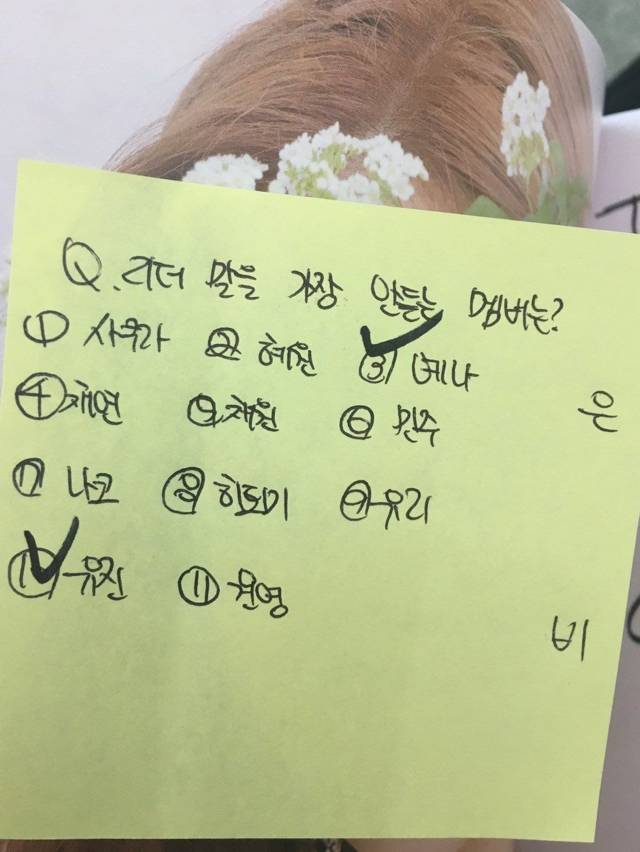 Q. 리더 말을 가장 안듣는 멤버는?
① 사쿠라 ② 혜원 ③ 예나
④ 채연 ⑤ 채원 ⑥ 민주
⑦ 나코 ⑧ 히토미 ⑨ 유리
⑩ 유진 ⑪ 원영
은
비